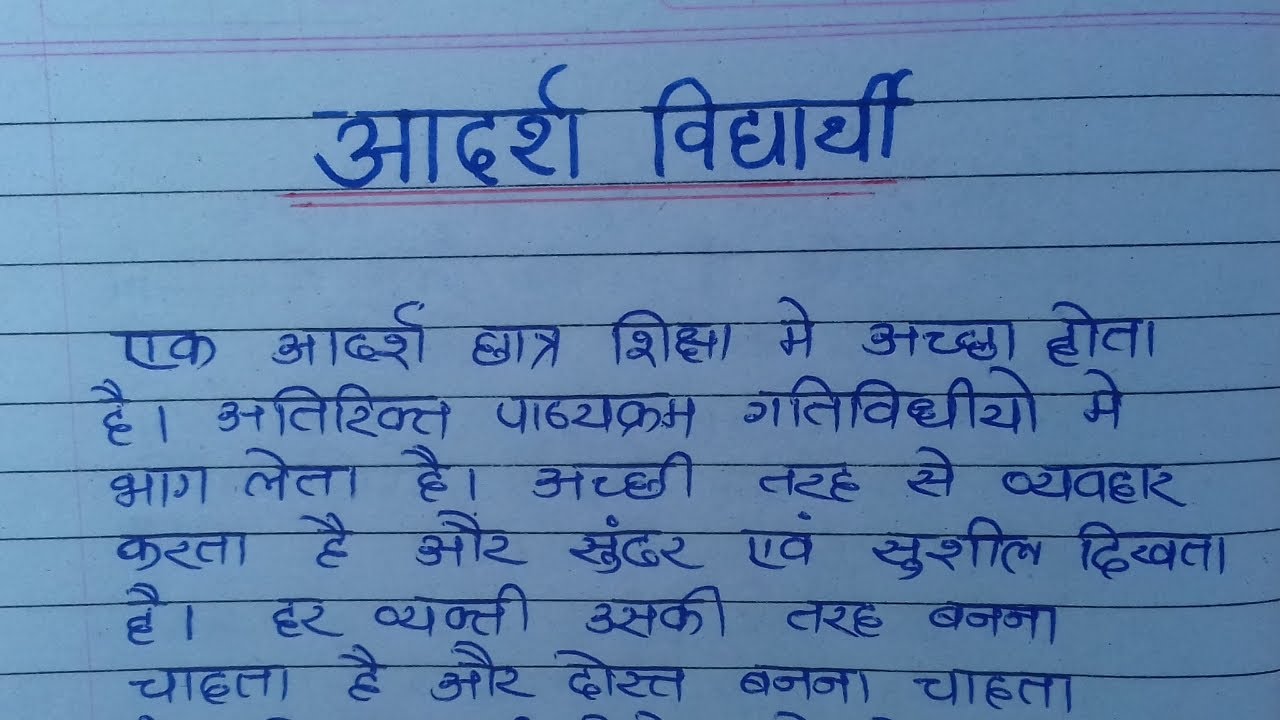 आदर्श विद्यार्थी
एक आदर्श छात्र शिक्षा मे अच्छा होता
है। अतिरिक्त पाठ्यक्रम गतिविधीयो मे
भाग लेता है। अच्छी तरह से व्यवहार
करता है और सुंदर एवं सुशील दिखता
है। हर व्यक्ती उसकी तरह बनना
चाहता है और दोस्त बनना चाहता